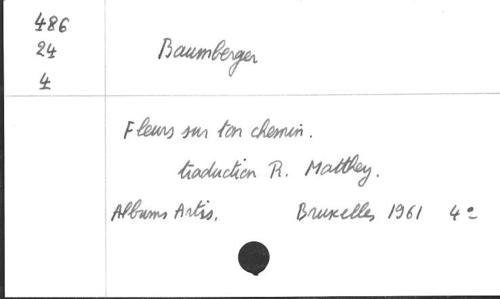 486
24
4
Baumberger
Fleurs sur ton chemin.
traduction R. Matthey.
Albums Artis. Bruxelles 1961 4º